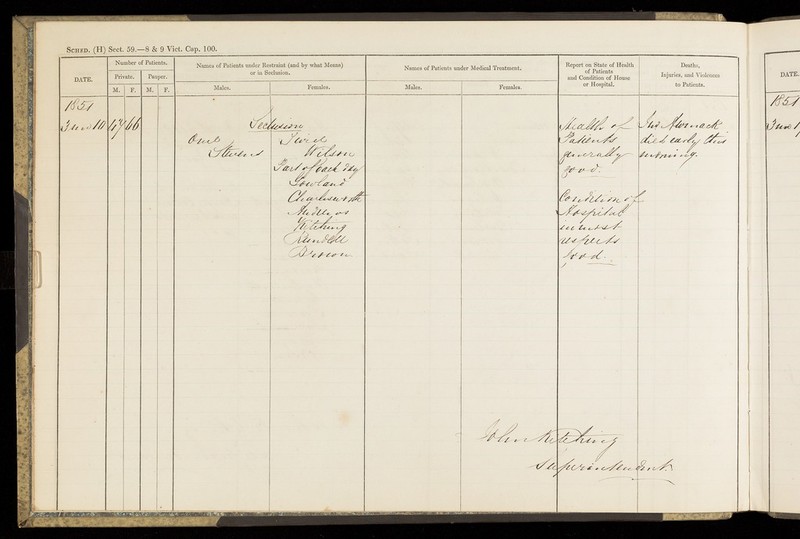 SCHED. (H) Sect. 59.—8 & 9 Vict. Cap. 100.
DATE.
Number of Patients.
Private.
Pauper.
M. F. M. F.
Names of Patients under Restraint (and by what Means)
or in Seclusion.
Males.
Females.
Names of Patients under Medical Treatment.
Males.
Females.
Report on State of Health
of Patients
and Condition of House
or Hospital.
Deaths,
Injuries, and Violences
to Patients.
1851
June 10 47 66
Seclusion
One
Stevens
Two
Wilson
Part of each day
Gowland
Charlesworth
Kitching
Health of
Patients
generally
good.
Condition of
Hospital
in most
respects
good.
died early this
morning.
John Kitching
Superintendent.
DATE.
1851
June 1